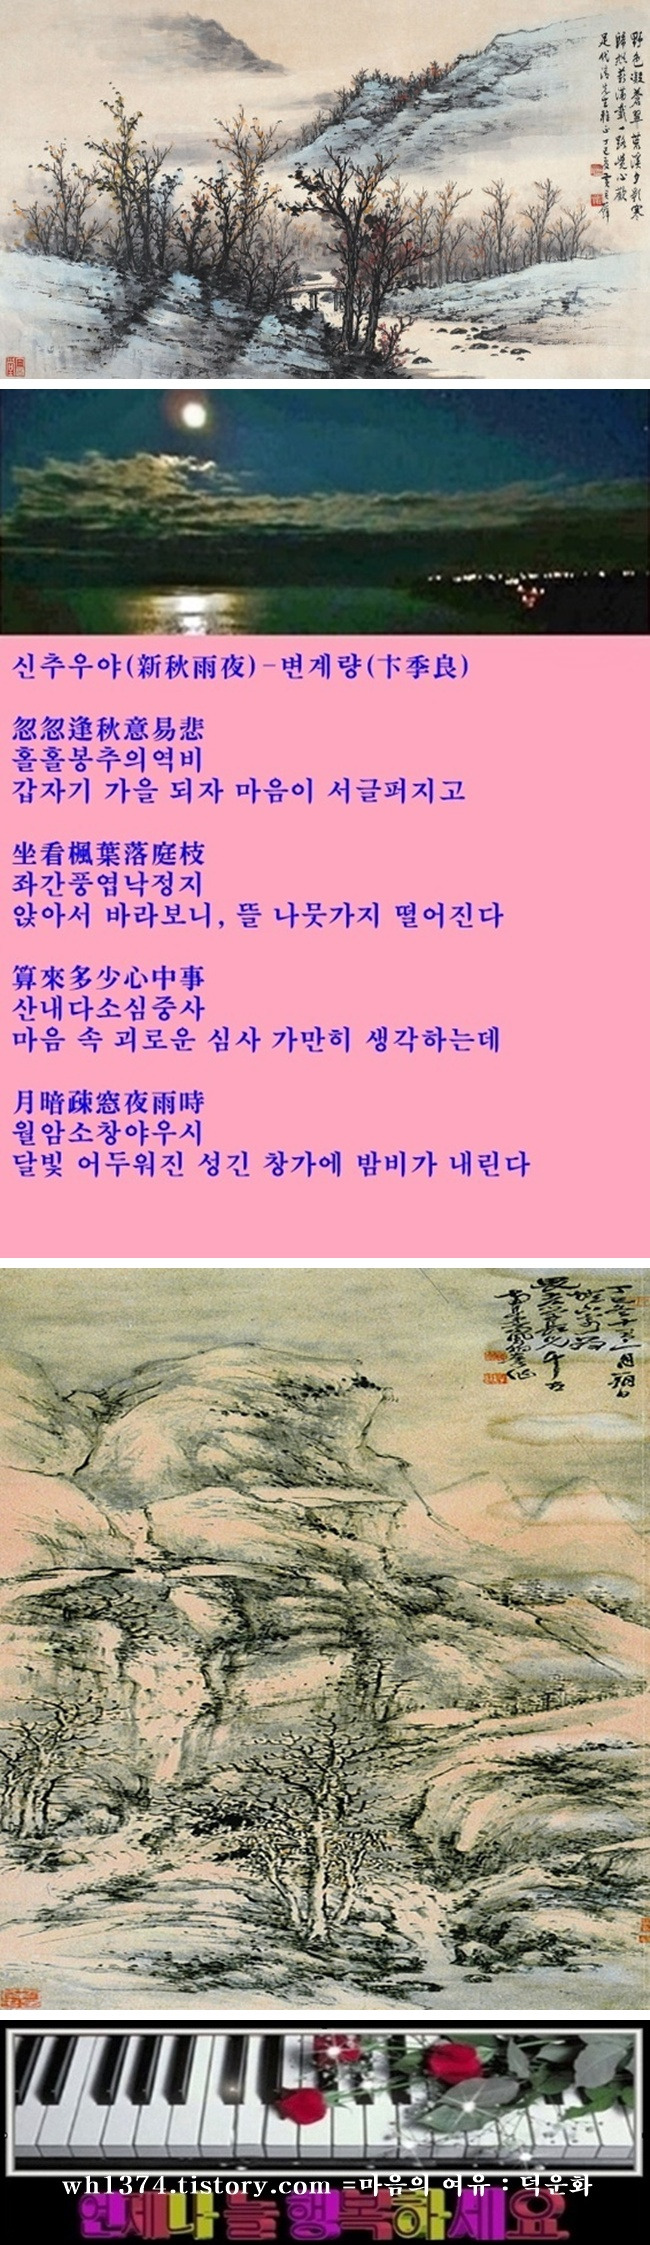 野色凝蒼翠 荒溪夕影寒
歸樵薪滿載 一路覺心歡
신추우야(新秋雨夜)-변계량(卞季良)
忽忽逢秋意易悲
홀홀봉추의역비
갑자기 가을 되자 마음이 서글퍼지고
坐看楓葉落庭枝
좌간풍엽낙정지
앉아서 바라보니, 뜰 나뭇가지 떨어진다
算來多少心中事
산내다소심중사
마음 속 괴로운 심사 가만히 생각하는데
月暗疎窓夜雨時
월암소창야우시
달빛 어두워진 성긴 창가에 밤비가 내린다
wh1374.tistory.com =마음의 여유 : 덕운화
언제나 늘 행복하세요